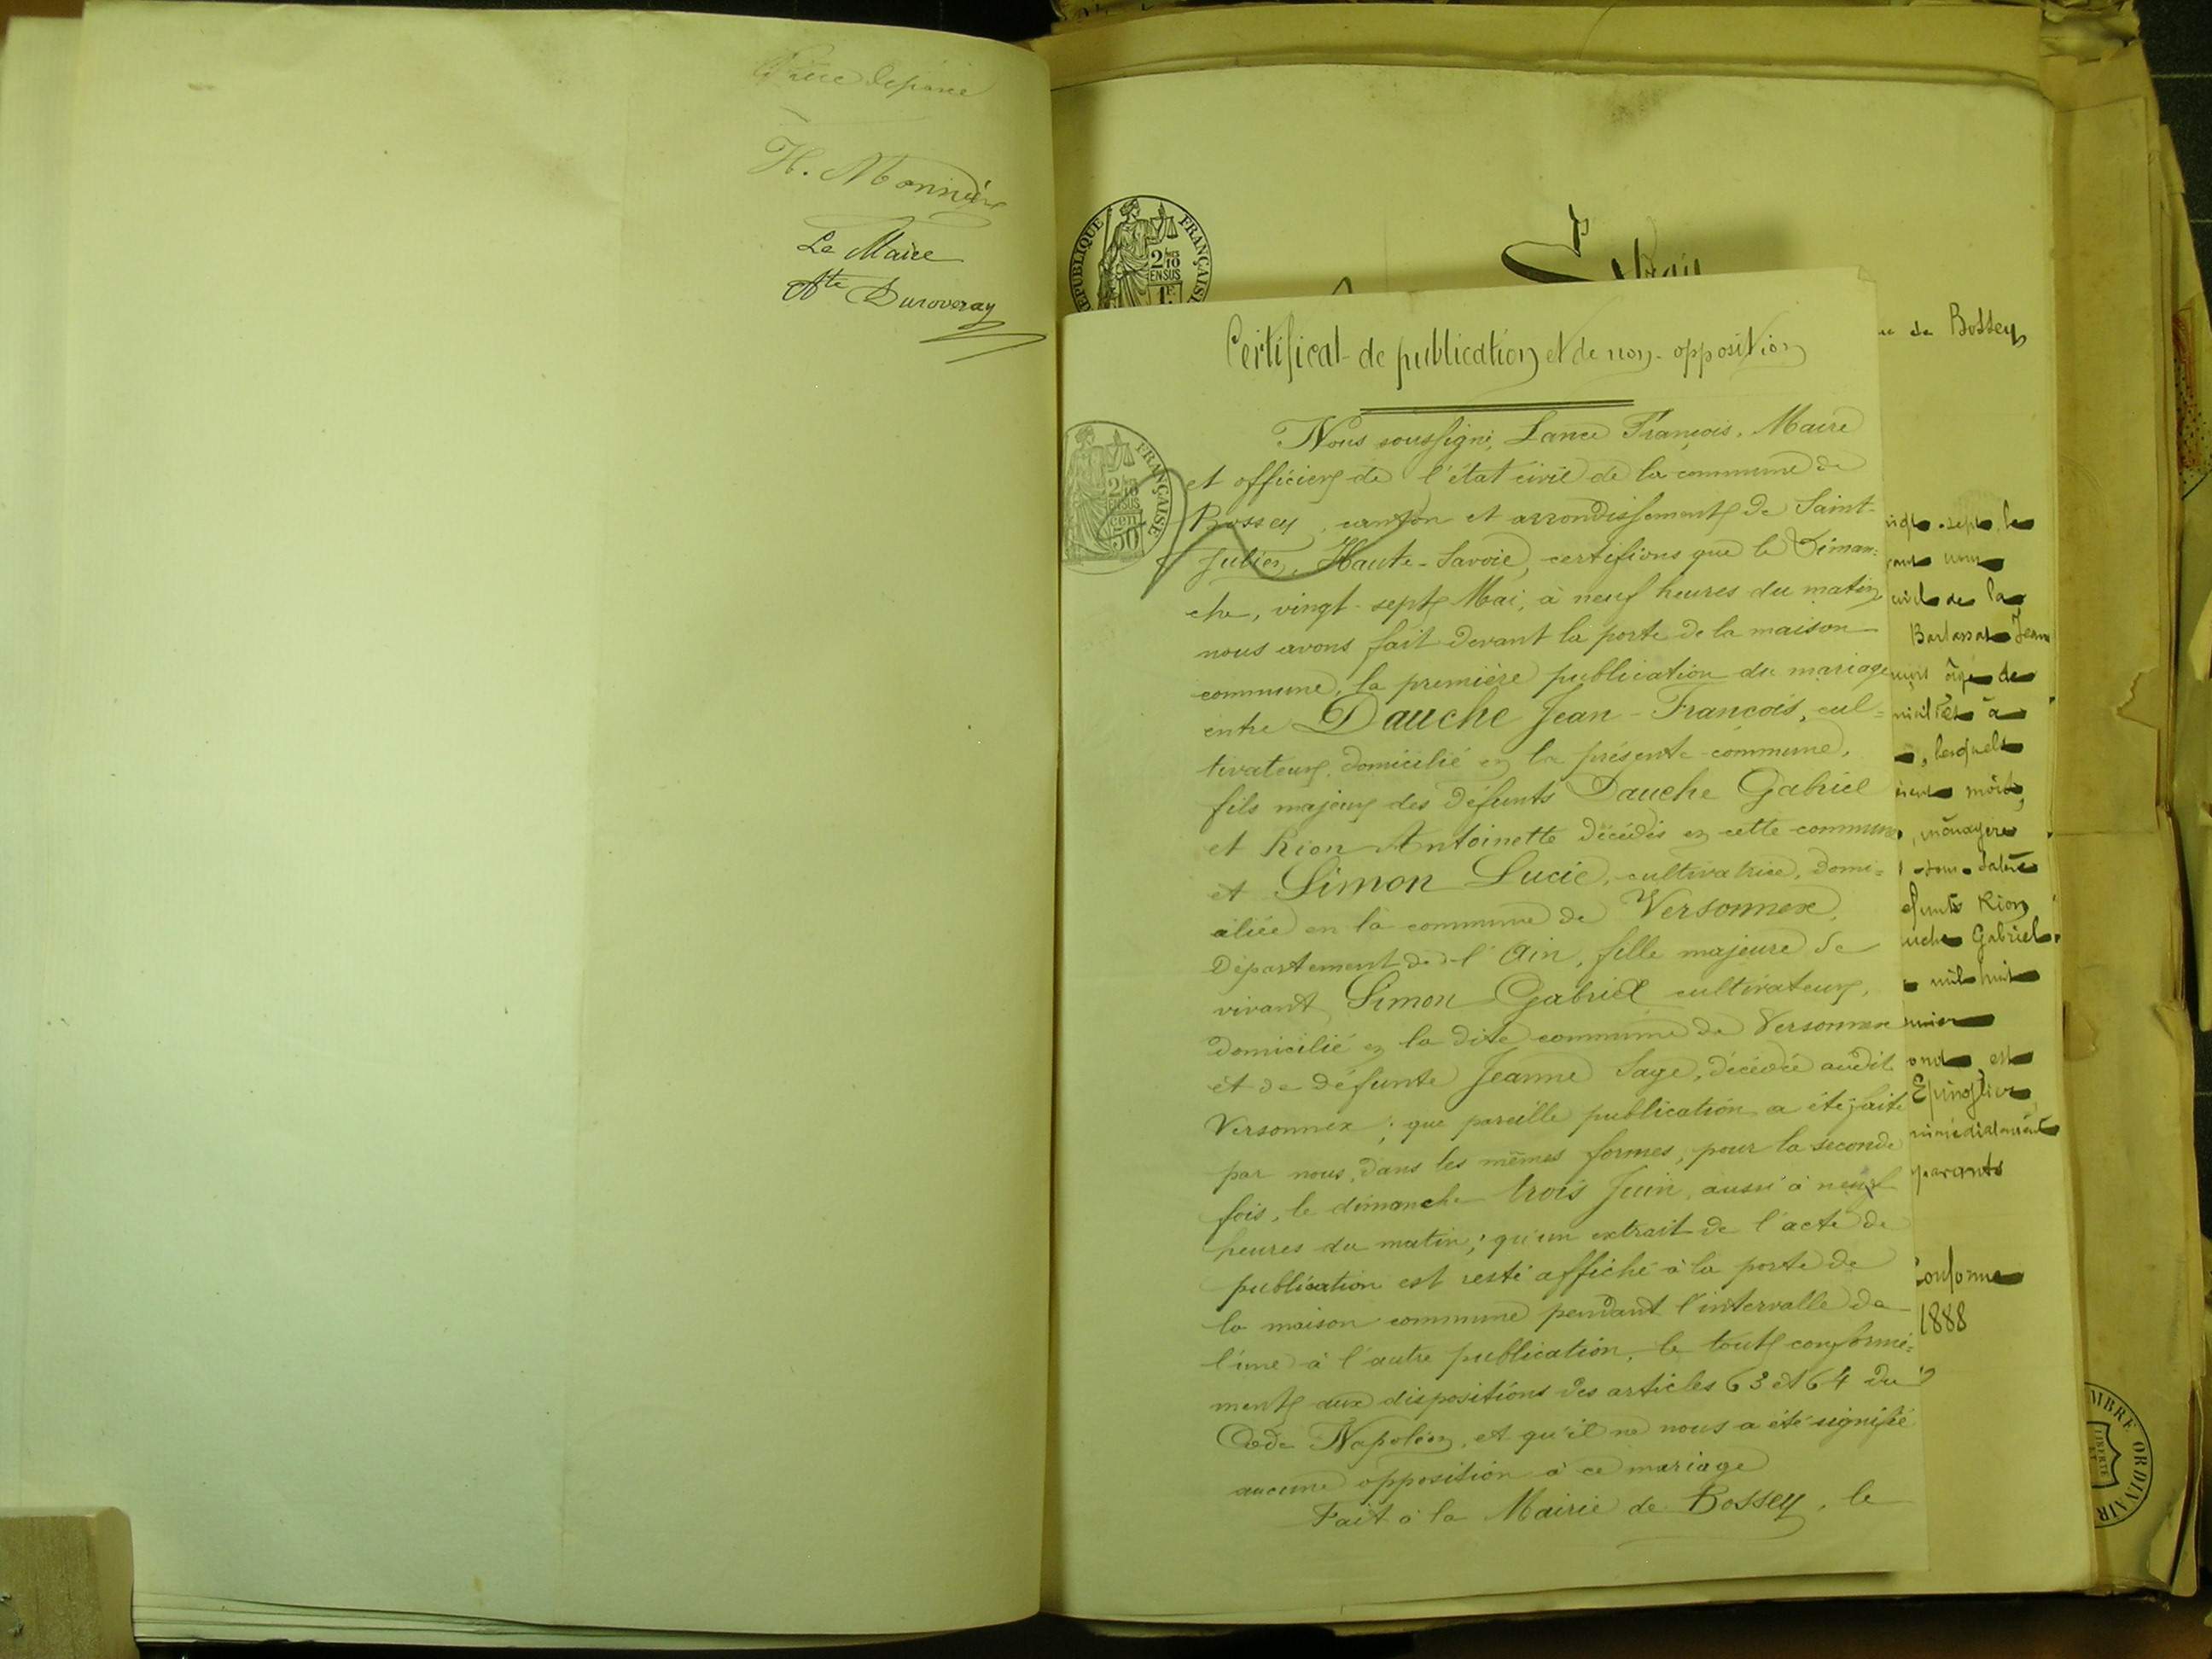 Pièce déposée
H. Monnier
Le Maire
Ate Duroveray
RÉPUBLIQUE FRANÇAISE
2/10
EN SUS
1F
Extrait
de Bossey
Certificat de publication et de non-opposition
FRANÇAISE
2/10
EN SUS
cen
50
Nous soussigné, Lance François, Maire
et officier de l'état civil de la commune de
Bossey, canton et arrondissement de Saint-
Julien, Haute-Savoie, certifions que le Diman=
che, vingt-sept Mai, à neuf heures du matin
nous avons fait devant la porte de la maison
commune, la première publication du mariage
entre Dauche Jean-François, cul=
tivateur, domicilié en la présente commune,
fils majeur des défunts Dauche Gabriel
et Rion Antoinette décédés en cette commune
et Simon Lucie, cultivatrice, domi=
ciliée en la commune de Versonnex,
Département de l'Ain, fille majeure de
vivant Simon Gabriel cultivateur,
domicilié en la dite commune de Versonnex
et de défunte Jeanne Sage, décédée audit
Versonnex; que pareille publication a été faite
par nous, dans les mêmes formes, pour la seconde
fois, le dimanche trois Juin, aussi à neuf
heures du matin; qu'un extrait de l'acte de
publication est resté affiché à la porte de
la maison commune pendant l'intervalle de
l'une à l'autre publication, le tout conformé=
ment aux dispositions des articles 63 et 64 du
Code Napoléon, et qu'il ne nous a été signifié
aucune opposition à ce mariage
Fait à la Mairie de Bossey, le
sept, le
nous
civil de la
Bartassat Jean
âgé de
à
, lesquels
, ménagère
Rion
Gabriel
mil huit
est
Epinglier
immédiatement
Conforme
1888
TIMBRE ORDINAIR